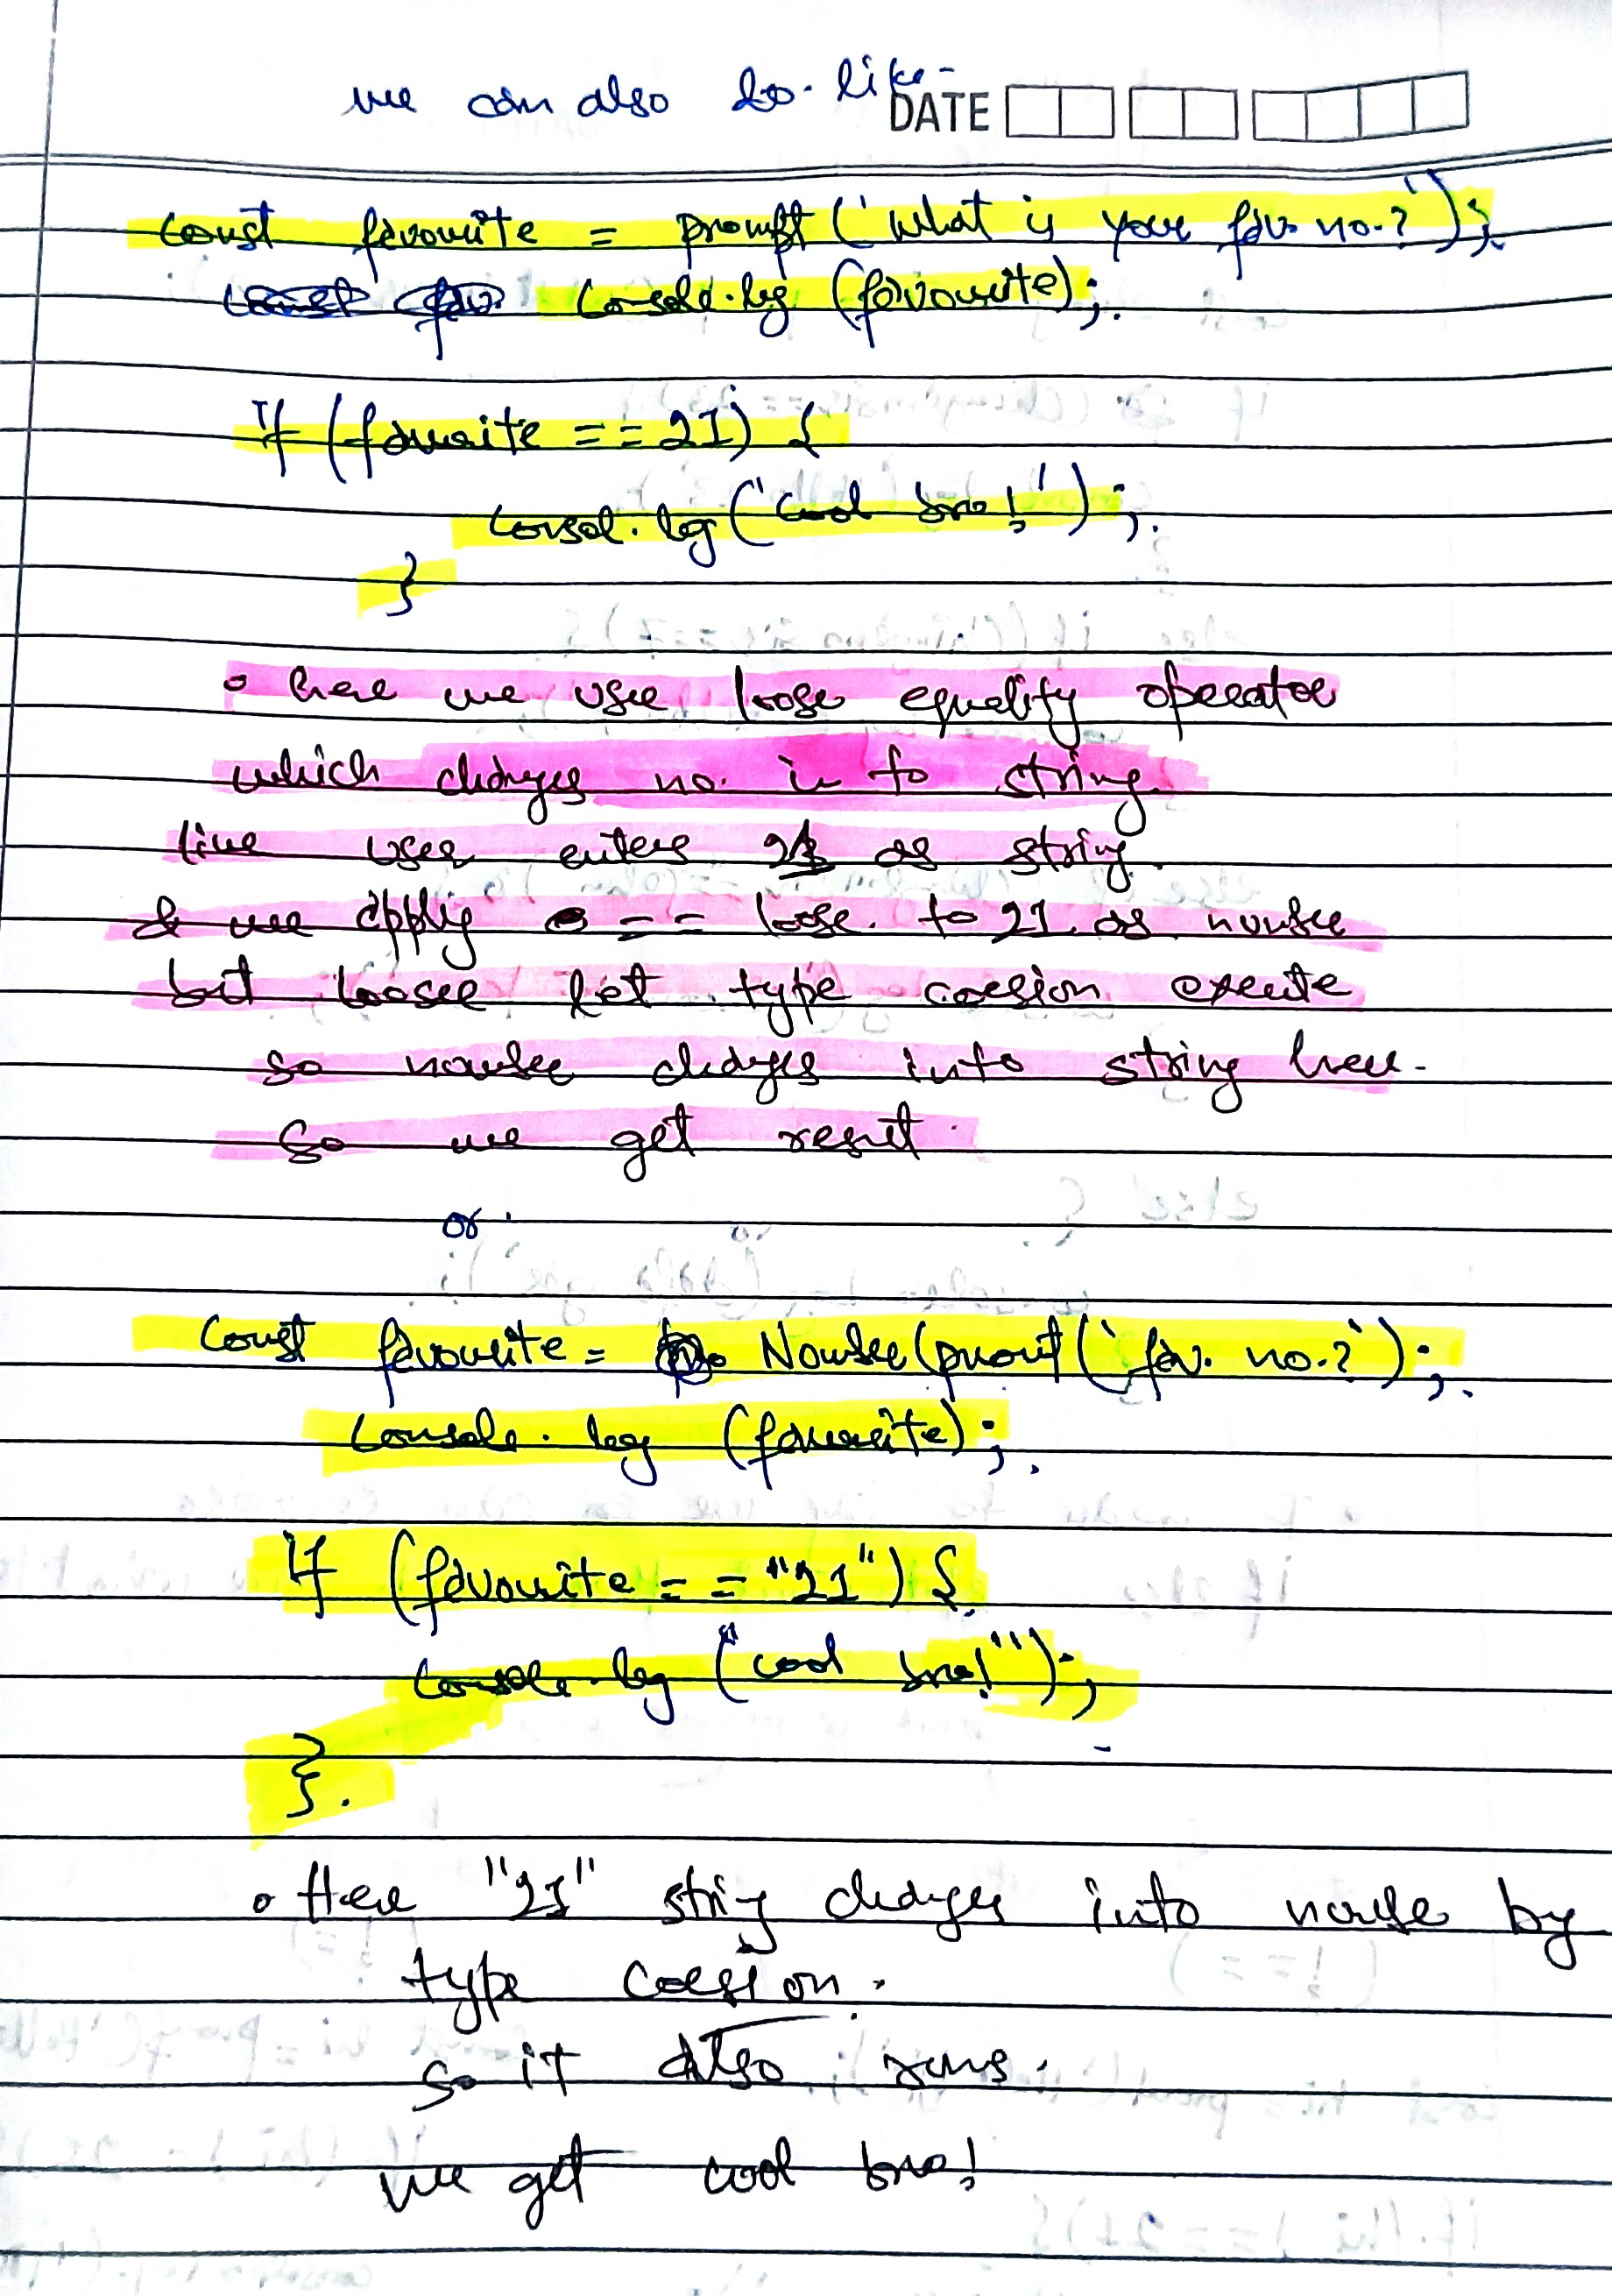 we can also do. like-
DATE
const favourite = prompt ('what is your fav. no.?');
console.log (favourite);
if (favourite == 21) {
consol.log ('Cool bro!');
}
• here we use loose equality operator
which changes no. in to string.
line user enters 21 as string.
& we apply == lose. to 21 as number
but loosee let type coersion exeute
so number changes into string here.
So we get result.
or.
const favourite = Number(promt('fav. no.?');
console.log (favourite);
if (favourite == "21") {
console.log ("cool bro!");
}.
• Here "21" string changes into number by
type coersion.
so it also runs.
we get cool bro!